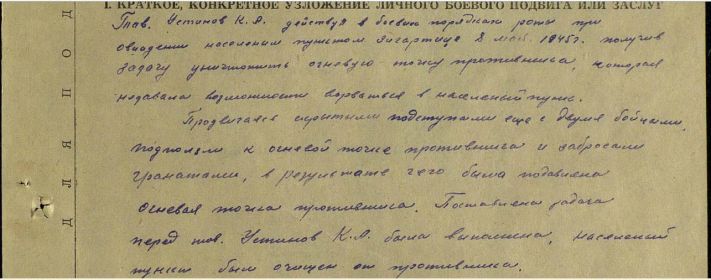 I. КРАТКОЕ, КОНКРЕТНОЕ ИЗЛОЖЕНИЕ ЛИЧНОГО БОЕВОГО ПОДВИГА ИЛИ ЗАСЛУГ
Тов. Устинов К.А. действуя в боевых порядках роты при
овладении населеным пунктом 2 мая 1945г. получив
задачу уничтожить огневую точку противника, которая
недавала возможности ворваться в населеный пункт.
Продвигаясь скрытыми подступами еще с двумя бойцами,
подползли к огневой точке противника и забросали
гранатами, в результате чего была подавлена
огневая точка противника. Поставлена задача
перед тов. Устинов К.А. была выполнена, населеный
пункт был очищен от противника.
ДЛЯ ПОД